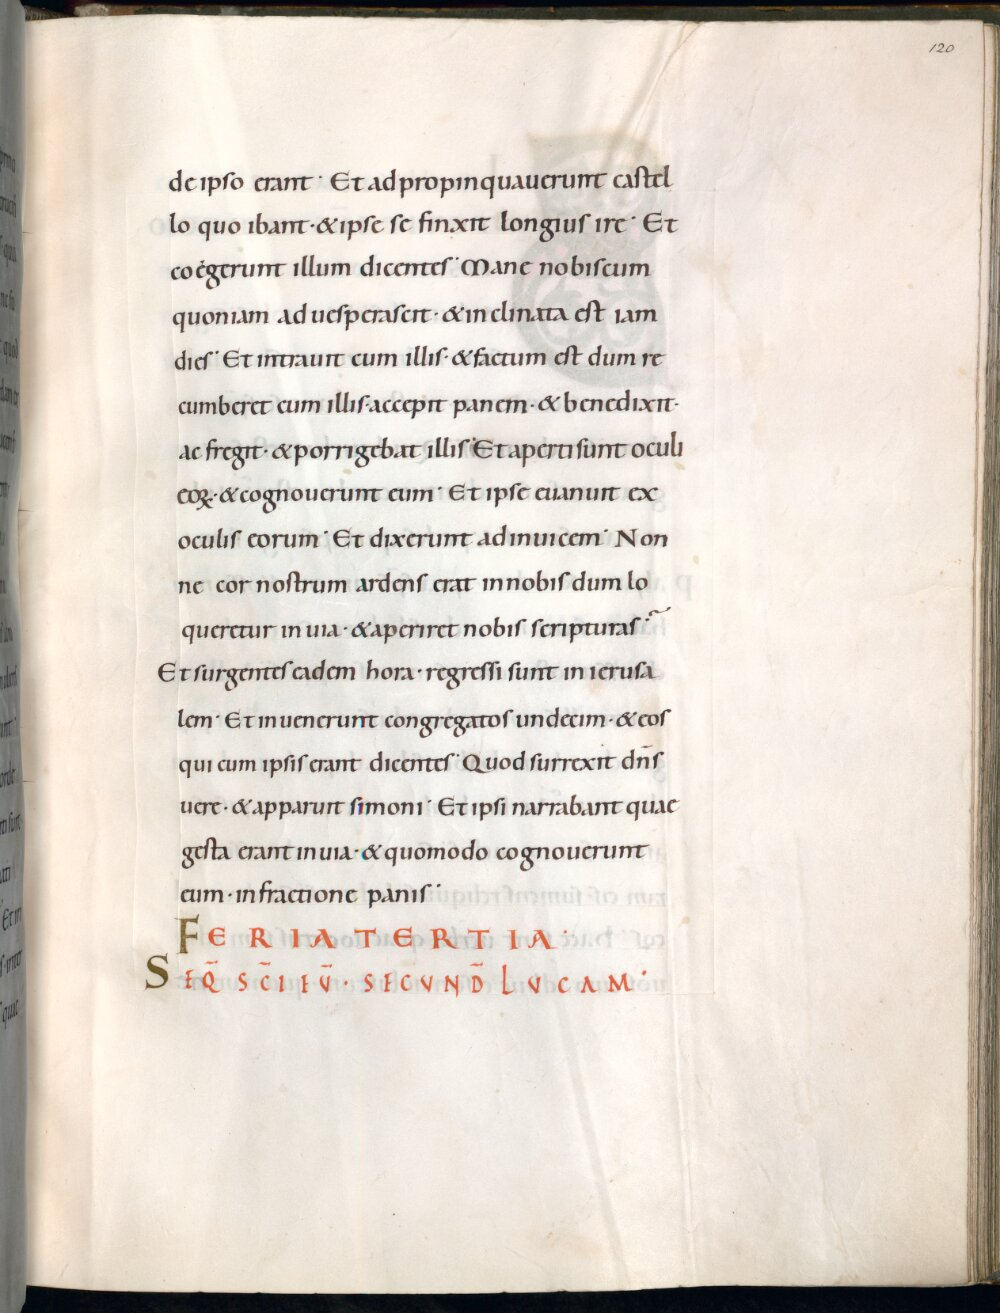 120
de ipso erant· Et adpropinquauerunt castel
lo quo ibant· & ipse se finxit longius ire· Et
coegerunt illum dicentes· Mane nobiscum
quoniam aduesperascit· & inclinata est iam
dies· Et intrauit cum illis· & factum est dum re
cumberet cum illis· accepit panem· & benedixit·
ac fregit· & porrigebat illis· Et aperti sunt oculi
eoꝝ· & cognouerunt eum· Et ipse euanuit ex
oculis eorum· Et dixerunt adinuicem· Non
ne cor nostrum ardens erat in nobis dum lo
queretur in uia· & aperiret nobis scripturas·~
Et surgentes eadem hora· regressi sunt in ierusa
lem· Et inuenerunt congregatos undecim· & eos
qui cum ipsis erant dicentes· Quod surrexit dn̄s
uere· & apparuit simoni· Et ipsi narrabant quae
gesta erant in uia· & quomodo cognouerunt
eum· in fractione panis·
FERIA TERTIA·
SEQ̄ SC̄I EŪ· SECUND̄ LUCAM·